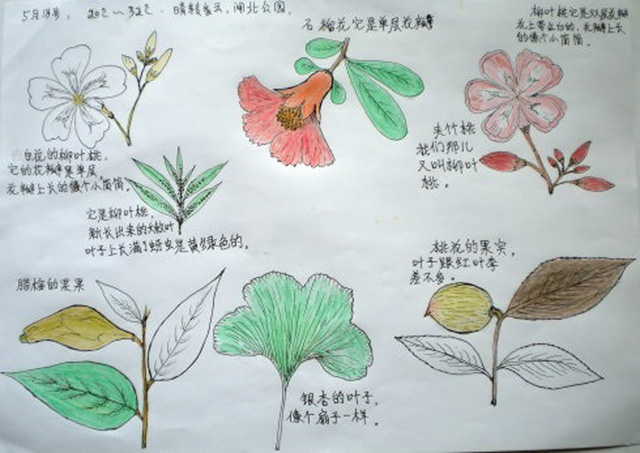 5月 20℃~32℃. 晴转多云. 闸北公园.
石榴花它是单层花瓣
柳叶桃它是双层花瓣
花上带点白的, 花瓣上长
的像个小筒筒.
白花的柳叶桃.
它的花瓣是单层
花瓣上长的像个小筒筒.
夹竹桃
我们那儿
又叫柳叶
桃.
它是柳叶桃,
新长出来的嫩叶
叶子上长满了蚜虫是黄绿色的.
桃花的果实,
叶子跟红叶李
差不多.
腊梅的果实
银杏的叶子,
像个扇子一样.